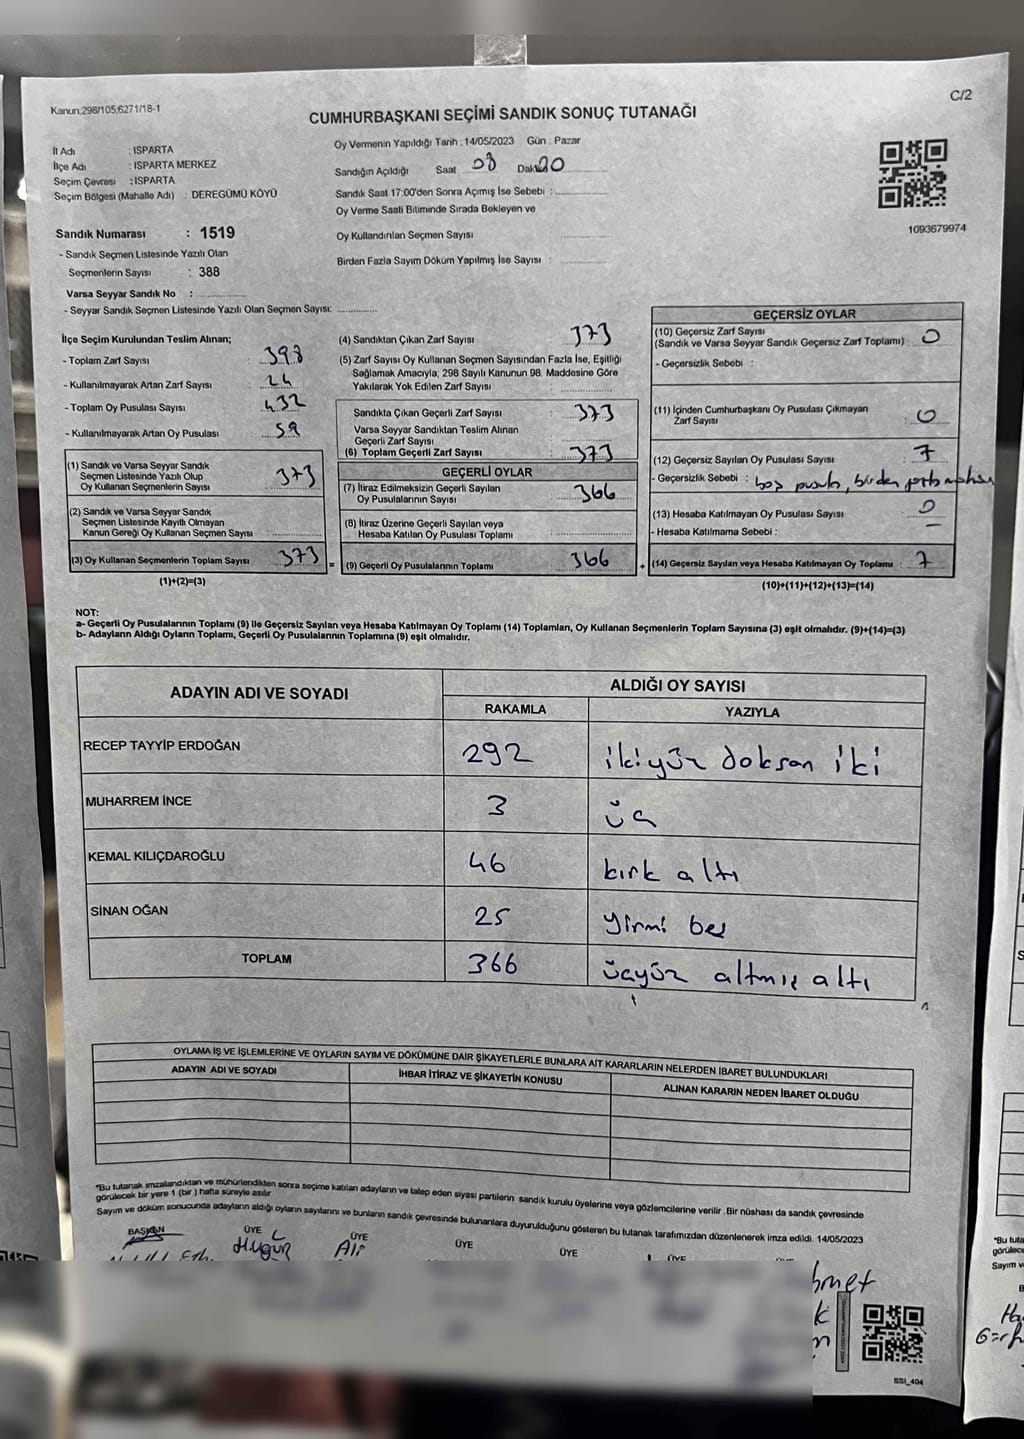 Kanun:298/105;6271/18-1
C/2
CUMHURBAŞKANI SEÇİMİ SANDIK SONUÇ TUTANAĞI
İl Adı : ISPARTA
İlçe Adı : ISPARTA MERKEZ
Seçim Çevresi : ISPARTA
Seçim Bölgesi (Mahalle Adı) : DEREGÜMÜ KÖYÜ
Sandık Numarası : 1519
- Sandık Seçmen Listesinde Yazılı Olan
Seçmenlerin Sayısı : 388
Varsa Seyyar Sandık No :
- Seyyar Sandık Seçmen Listesinde Yazılı Olan Seçmen Sayısı:
Oy Vermenin Yapıldığı Tarih : 14/05/2023 Gün : Pazar
Sandığın Açıldığı Saat 08 Dak 20
Sandık Saat 17:00'den Sonra Açımış İse Sebebi :
Oy Verme Saati Bitiminde Sırada Bekleyen ve
Oy Kullandırılan Seçmen Sayısı
Birden Fazla Sayım Döküm Yapılmış İse Sayısı :
1093679974
İlçe Seçim Kurulundan Teslim Alınan;
- Toplam Zarf Sayısı : 398
- Kullanılmayarak Artan Zarf Sayısı : 24
- Toplam Oy Pusulası Sayısı : 432
- Kullanılmayarak Artan Oy Pusulası : 59
(1) Sandık ve Varsa Seyyar Sandık
Seçmen Listesinde Yazılı Olup
Oy Kullanan Seçmenlerin Sayısı : 373
(2) Sandık ve Varsa Seyyar Sandık
Seçmen Listesinde Kayıtlı Olmayan
Kanun Gereği Oy Kullanan Seçmen Sayısı :
(3) Oy Kullanan Seçmenlerin Toplam Sayısı : 373
(1)+(2)=(3)
(4) Sandıktan Çıkan Zarf Sayısı : 373
(5) Zarf Sayısı Oy Kullanan Seçmen Sayısından Fazla İse, Eşitliği
Sağlamak Amacıyla; 298 Sayılı Kanunun 98. Maddesine Göre
Yakılarak Yok Edilen Zarf Sayısı :
Sandıkta Çıkan Geçerli Zarf Sayısı : 373
Varsa Seyyar Sandıktan Teslim Alınan
Geçerli Zarf Sayısı :
(6) Toplam Geçerli Zarf Sayısı : 373
GEÇERLİ OYLAR
(7) İtiraz Edilmeksizin Geçerli Sayılan
Oy Pusulalarının Sayısı : 366
(8) İtiraz Üzerine Geçerli Sayılan veya
Hesaba Katılan Oy Pusulası Toplamı :
(9) Geçerli Oy Pusulalarının Toplamı : 366
GEÇERSİZ OYLAR
(10) Geçersiz Zarf Sayısı
(Sandık ve Varsa Seyyar Sandık Geçersiz Zarf Toplamı) : 0
- Geçersizlik Sebebi :
(11) İçinden Cumhurbaşkanı Oy Pusulası Çıkmayan
Zarf Sayısı : 0
(12) Geçersiz Sayılan Oy Pusulası Sayısı : 7
- Geçersizlik Sebebi : boş pusula, birden
(13) Hesaba Katılmayan Oy Pusulası Sayısı : 0
- Hesaba Katılmama Sebebi :
(14) Geçersiz Sayılan veya Hesaba Katılmayan Oy Toplamı : 7
(10)+(11)+(12)+(13)=(14)
NOT:
a- Geçerli Oy Pusulalarının Toplamı (9) ile Geçersiz Sayılan veya Hesaba Katılmayan Oy Toplamı (14) Toplamları, Oy Kullanan Seçmenlerin Toplam Sayısına (3) eşit olmalıdır. (9)+(14)=(3)
b- Adayların Aldığı Oyların Toplamı, Geçerli Oy Pusulalarının Toplamına (9) eşit olmalıdır.
ADAYIN ADI VE SOYADI
ALDIĞI OY SAYISI
RAKAMLA
YAZIYLA
RECEP TAYYİP ERDOĞAN 292 ikiyüz doksan iki
MUHARREM İNCE 3 üç
KEMAL KILIÇDAROĞLU 46 kırk altı
SİNAN OĞAN 25 yirmi beş
TOPLAM 366 üçyüz altmış altı
OYLAMA İŞ VE İŞLEMLERİNE VE OYLARIN SAYIM VE DÖKÜMÜNE DAİR ŞİKAYETLERLE BUNLARA AİT KARARLARIN NELERDEN İBARET BULUNDUKLARI
ADAYIN ADI VE SOYADI
İHBAR İTİRAZ VE ŞİKAYETİN KONUSU
ALINAN KARARIN NEDEN İBARET OLDUĞU
*Bu tutanak imzalandıktan ve mühürlendikten sonra seçime katılan adayların ve talep eden siyasi partilerin sandık kurulu üyelerine veya gözlemcilerine verilir. Bir nüshası da sandık çevresinde
görülecek bir yere 1 (bir ) hafta süreyle asılır
Sayım ve döküm sonucunda adayların aldığı oyların sayılarını ve bunların sandık çevresinde bulunanlara duyurulduğunu gösteren bu tutanak tarafımızdan düzenlenerek imza edildi. 14/05/2023
BAŞKAN ÜYE ÜYE ÜYE ÜYE ÜYE
SSI_404